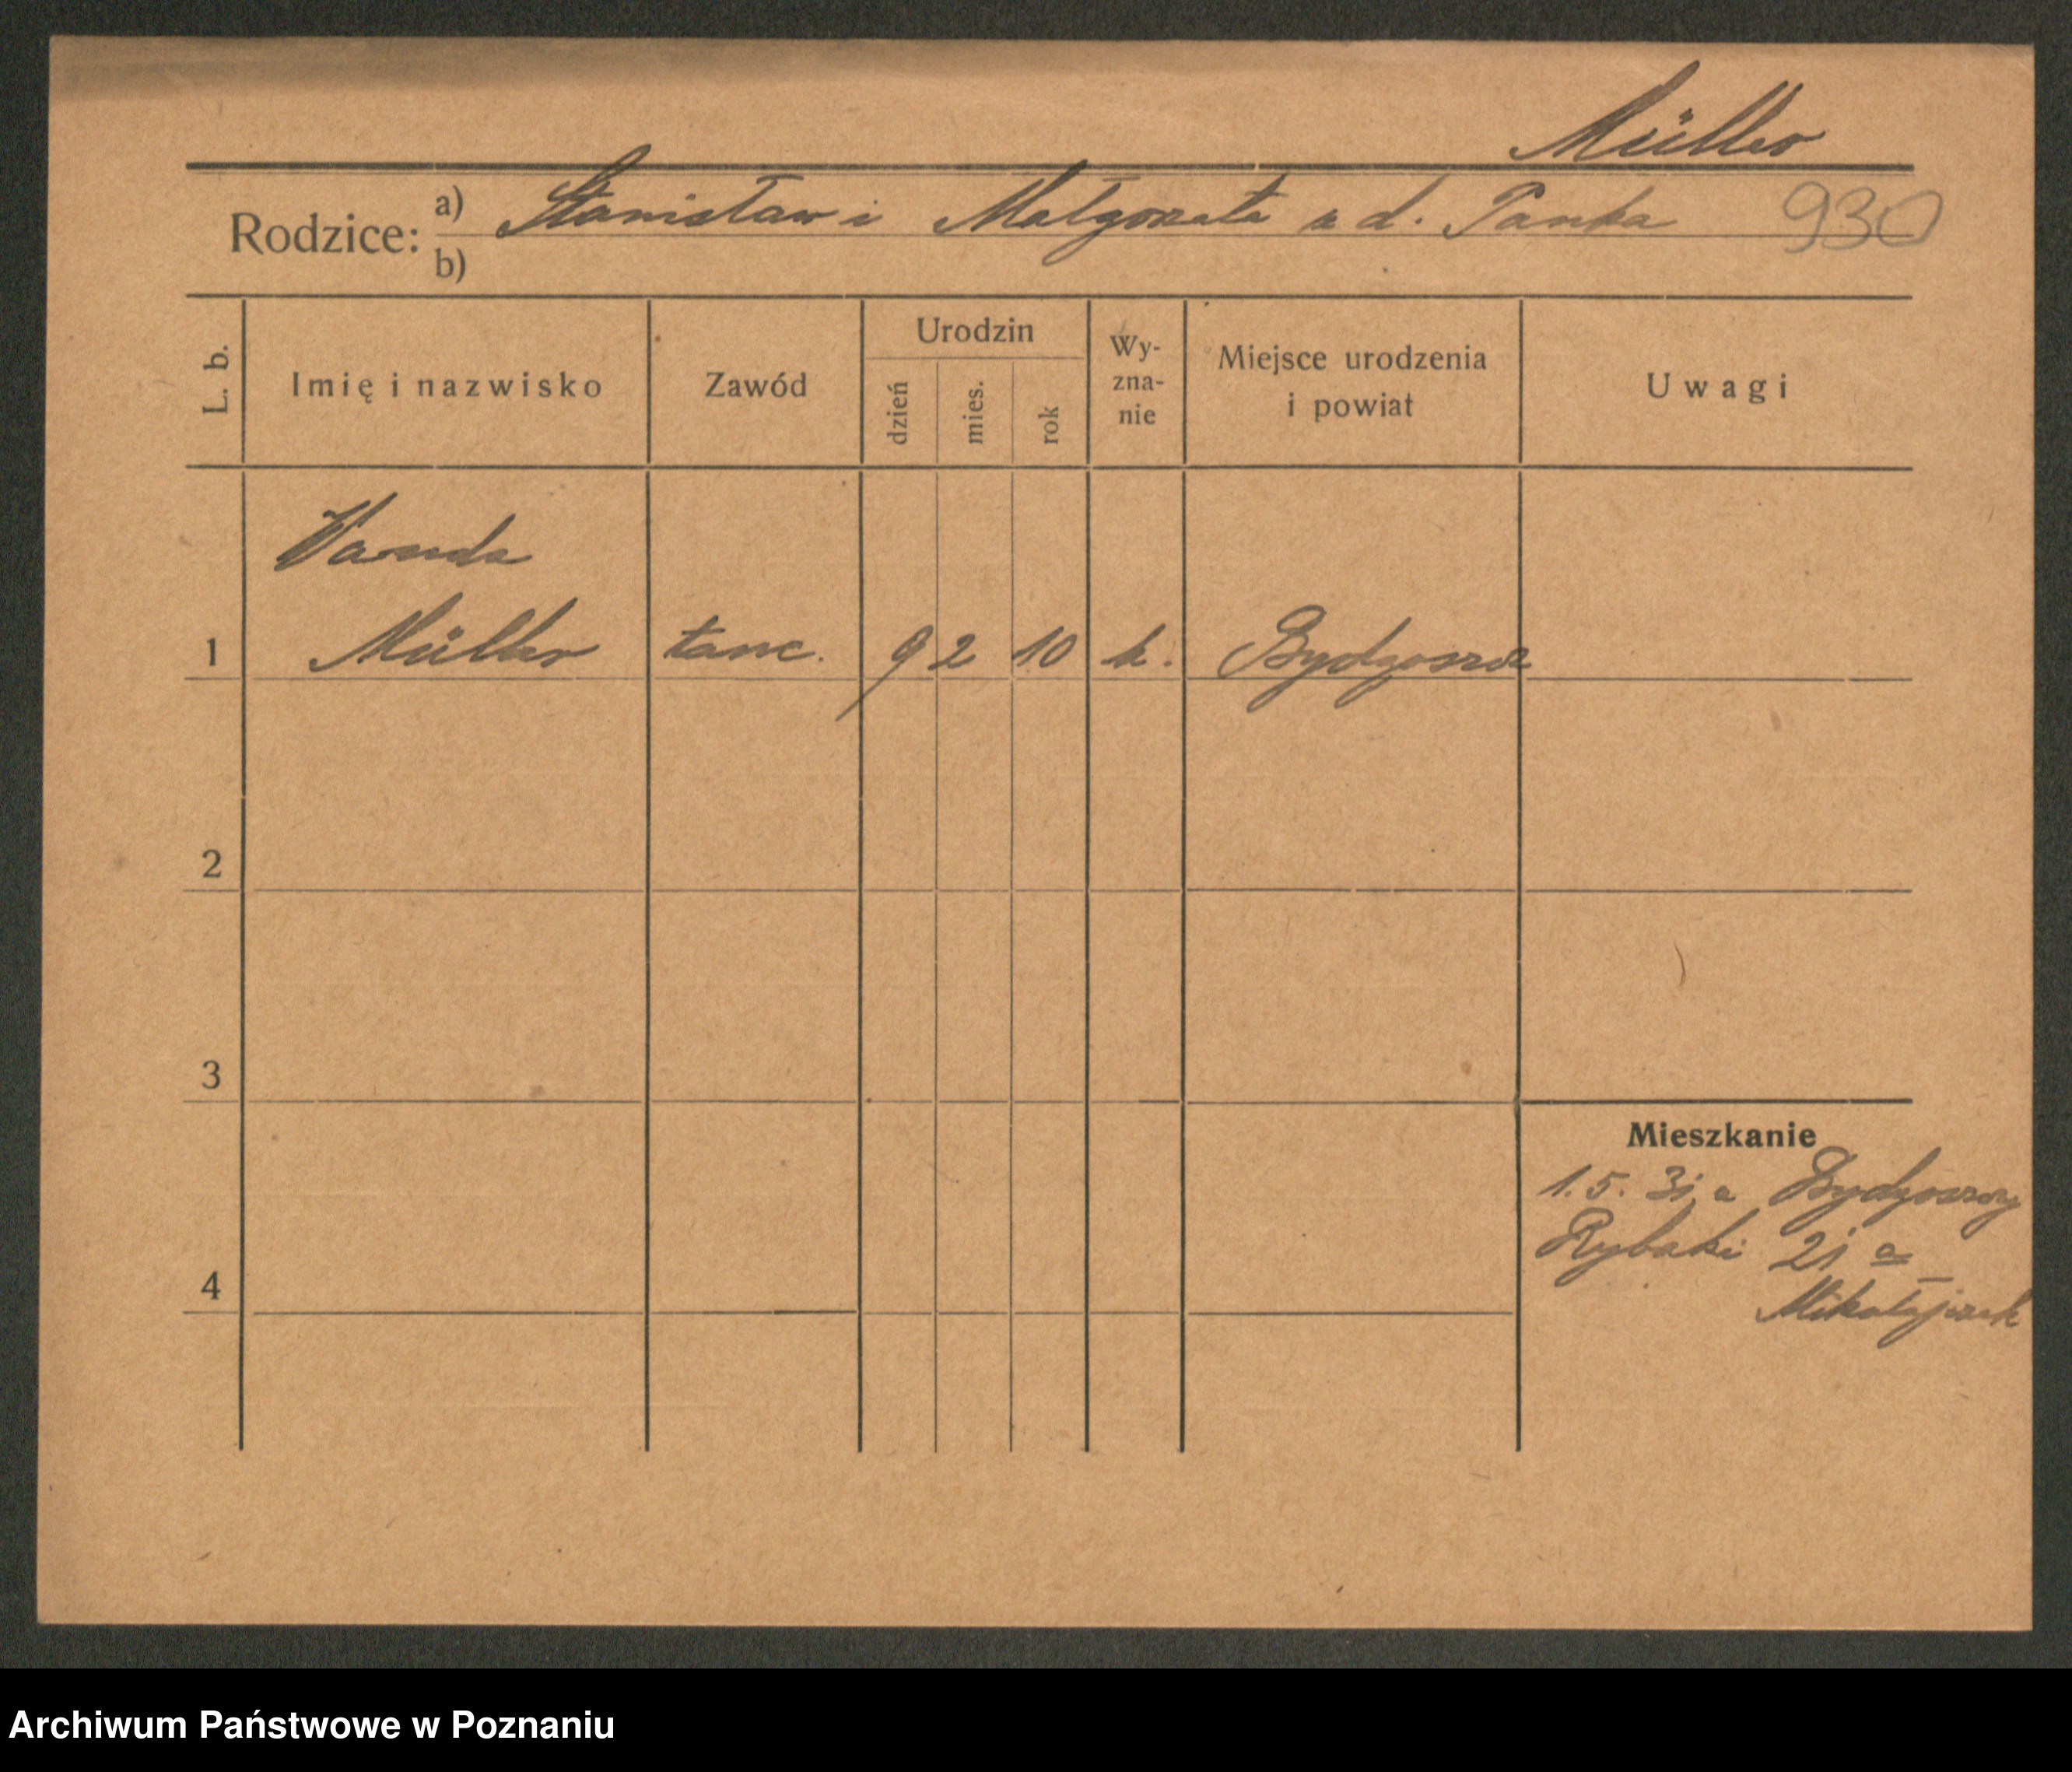 Müller
Rodzice: a) Stanisław i Małgorzata u d. Panka 930
b)
L. b. Imię i nazwisko Zawód Urodzin dzień mies. rok Wy-zna-nie Miejsce urodzenia i powiat Uwagi
Wanda
1 Müller tanc. 9 2 10 k. Bydgoszcz
2
3
Mieszkanie
1. 5. 31 a Bydgoszczy
Rybaki 21 a
4
Mikołajczak
Archiwum Państwowe w Poznaniu